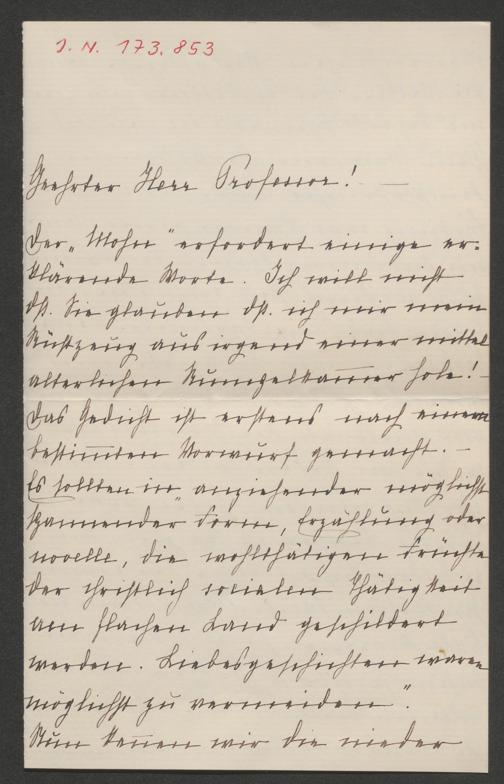 J. N. 173.853
Geehrter Herr Professor! —
Der „Mohn" erfordert einige er-
klärende Worte. Ich will nicht
dß. Sie glauben dß. ich mir mein
Rüstzeug aus irgend einer mittel
alterlichen Rumpelkam̅er hole! -
Das Gedicht ist erstens nach einem
bestim̅ten Vorwurf gemacht. —
Es sollten in „anziehender möglichst
spannender Form, Erzählung oder
novelle, die wohlthätigen Früchte
der christlich socialen Thätigkeit
am flachen Land geschildert
werden. Liebesgeschichten waren
möglichst zu vermeiden".
Nun ken̅en wir die nieder